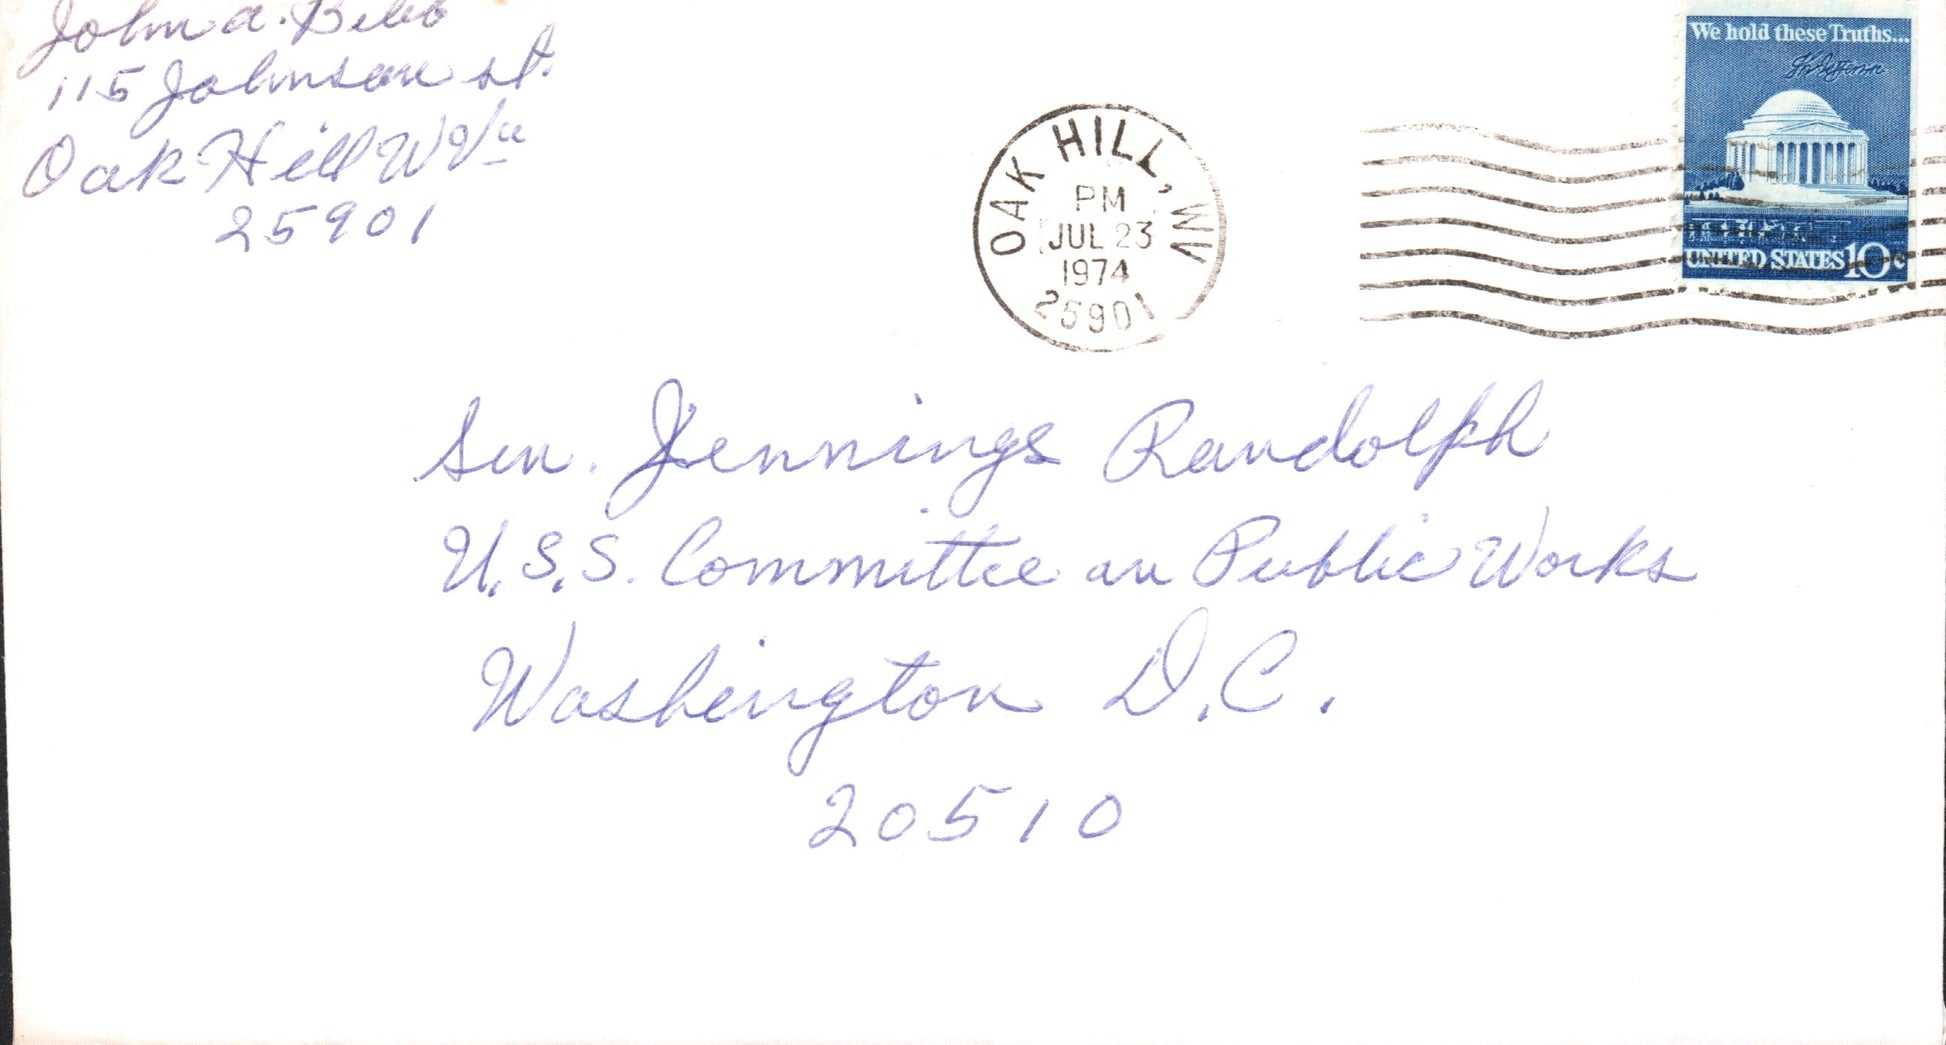 John A. Bibb
115 Johnson st.
Oak Hill W Va
25901
OAK HILL, WV
PM
JUL 23
1974
25901
We hold these Truths...
Th Jefferson
UNITED STATES 10c
Sen. Jennings Randolph
U.S.S. Committee on Public Works
Washington D.C.
20510